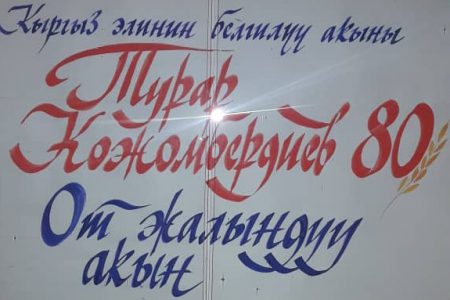 Кыргыз элинин белгилүү акыны
Турар
Кожомбердиев 80
От жалындуу
акын